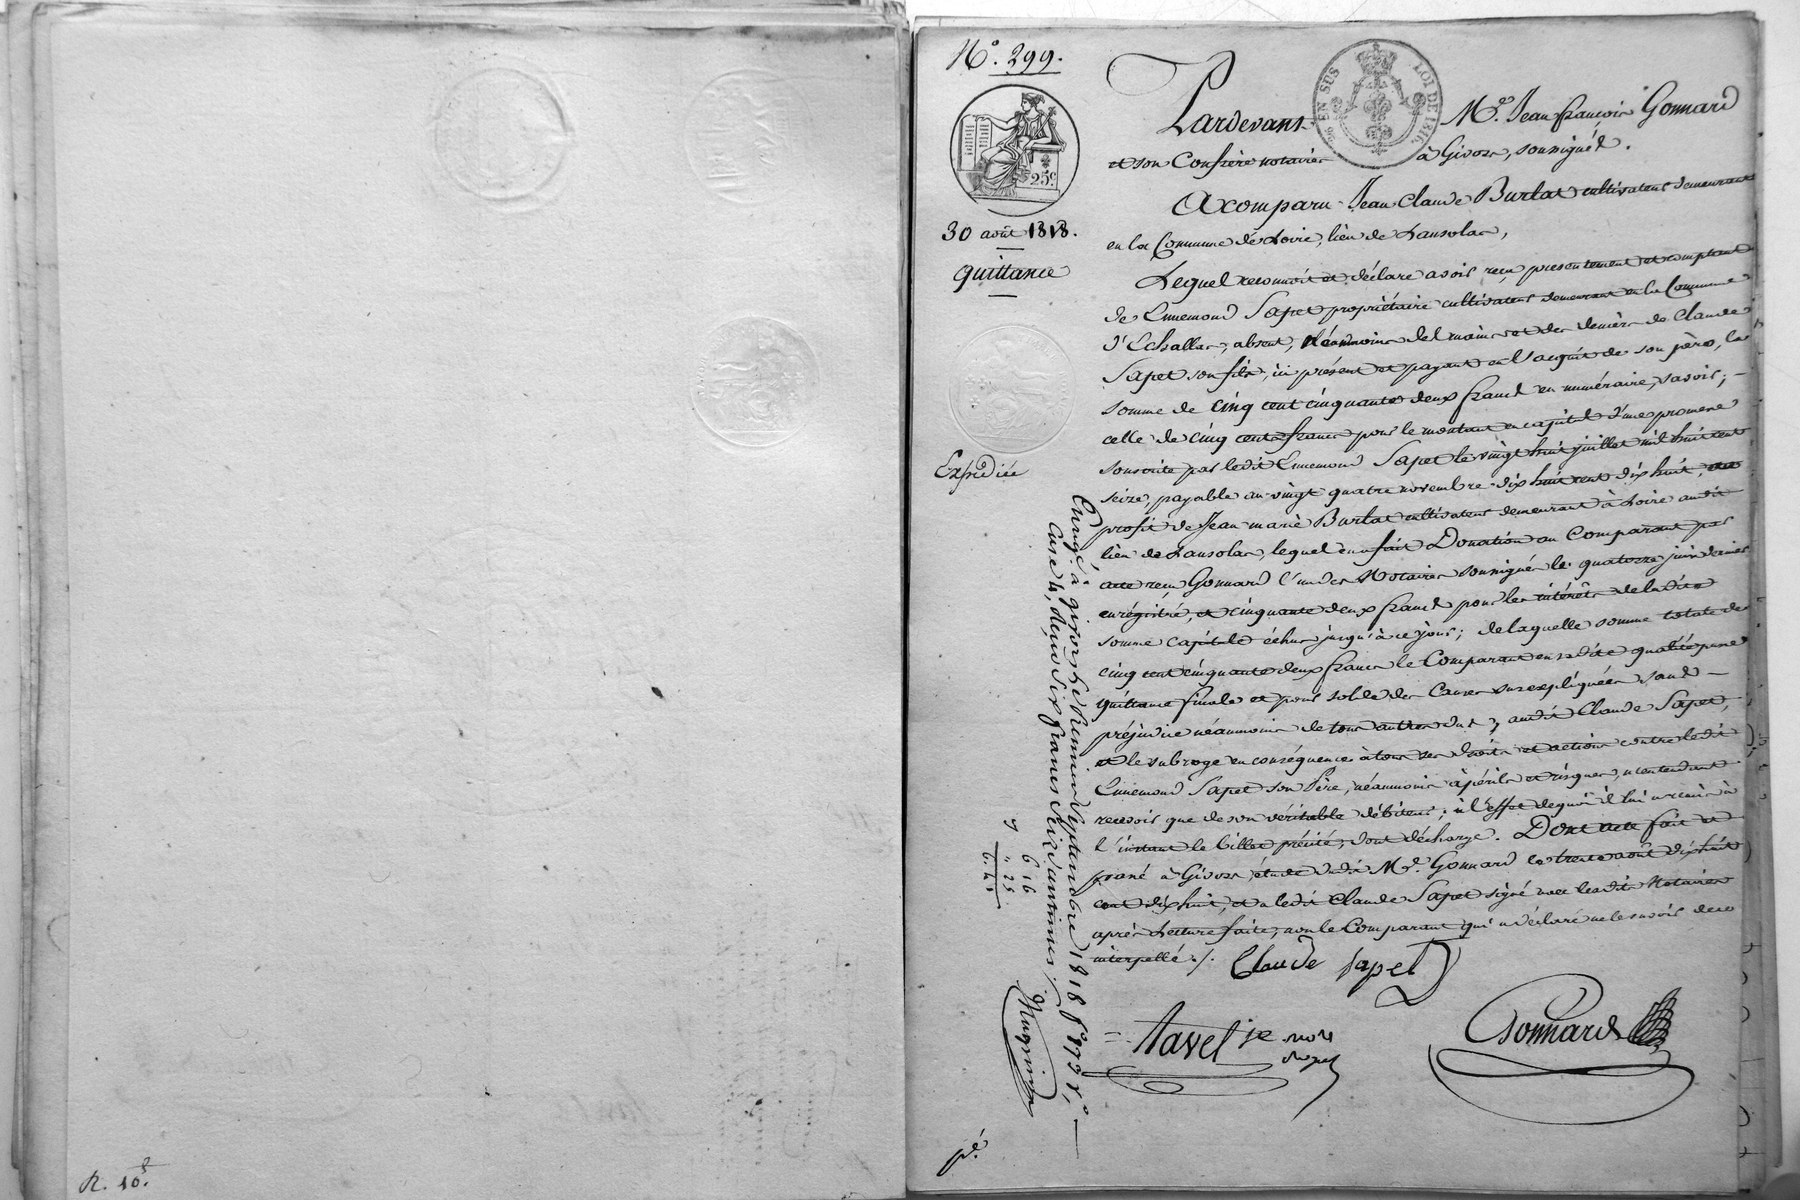 R. 10.s
N.o 299.
25.c
30 août 1818.
quittance
Expédiée
EN SUS LOI DE 1816
Pardevant M.e Jean françois Gonnard
et son Confrère notaires à Givors, soussignés.
A comparu Jean Claude Burlat cultivateur demeurant
en la Commune de Loire, lieu de Lansolas,
Lequel reconnoit et déclare avoir reçu presentement et comptant
de Ennemond Sapet propriétaire cultivateur demeurant en la Commune
d'Echallas, absent, Néanmoins des mains et des deniers de Claude
Sapet son fils, ici présent et payant en l'acquit de son père, la
somme de cinq cent cinquante deux francs en numéraire, savoir; –
celle de cinq cents francs pour le montant en capital d'une promesse
souscrite par ledit Ennemond Sapet le vingt huit juillet mil huit cent
seize, payable au vingt quatre novembre dix huit cent dix huit, au
profit de Jean marie Burlat cultivateur demeurant à Loire audit
lieu de Lansolas, lequel en a fait Donation au Comparant par
acte reçu Gonnard l'un des Notaires soussignés le quatorze juin dernier
enrégistré, et cinquante deux francs pour les intérêts de ladite
somme capitale échus jusqu'à ce jour; de laquelle somme totale de
cinq cent cinquante deux francs le Comparant en sadite qualité passe
quittance finale et pour solde des Causes susexpliquées sauf –
préjudice néanmoins de tous autres dus, audit Claude Sapet,
et le subroge en conséquence à tous ses droits et actions contre ledit
Ennemond Sapet son Père, néanmoins à périls et risques, n'entendant
recevoir que de son véritable débiteur; à l'effet de quoi il lui a remis à
l'instant le billet précité, dont décharge. Dont acte fait et
passé à Givors, étude dudit M.e Gonnard le trente août dix huit
cent dix huit, et a ledit Claude Sapet signé avec lesdits Notaires
après Lecture faite, non le Comparant qui a déclaré ne le savoir de ce
interpellé ./.
Claude Sapet
Tavel je.
Gonnard
Enregé à givors le Premier Septembre 1818 f.o 87 r.o,
Case 4, Reçu Six francs Seize centimes /.
6 16
.. 25
6. 41
Magnin
p.é